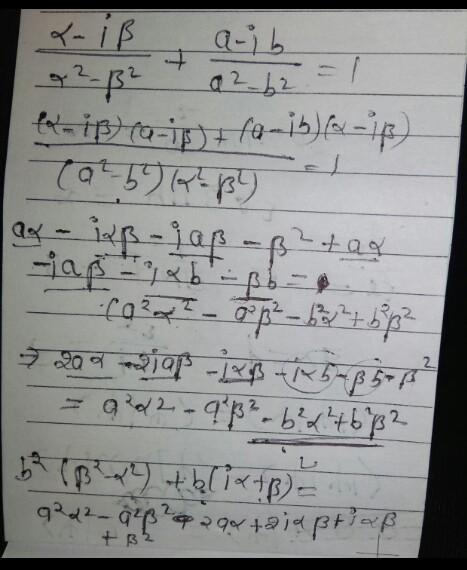 (α-iβ)/(α²-β²) + (a-ib)/(a²-b²) = 1
((α-iβ)(a-iβ) + (a-ib)(α-iβ))/((a²-b²)(α²-β²)) = 1
aα - iαβ - iaβ - β² + aα
-iaβ - iαb - βb =
(a²α² - a²β² - b²α² + b²β²
⇒ 2aα - 2iaβ - iαβ - iαb - βb - β²
= a²α² - a²β² - b²α² + b²β²
b² (β²-α²) + b(iα+β) =
a²α² - a²β² - 2aα + 2iαβ + iαβ
+ β²